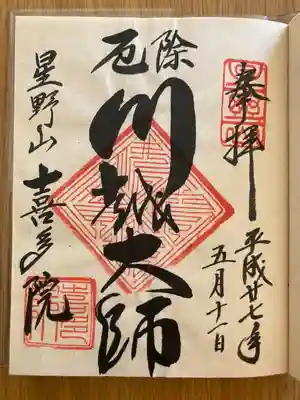 奉拝
平成廿七年
五月十一日
厄除
川越大師
星野山
喜多院